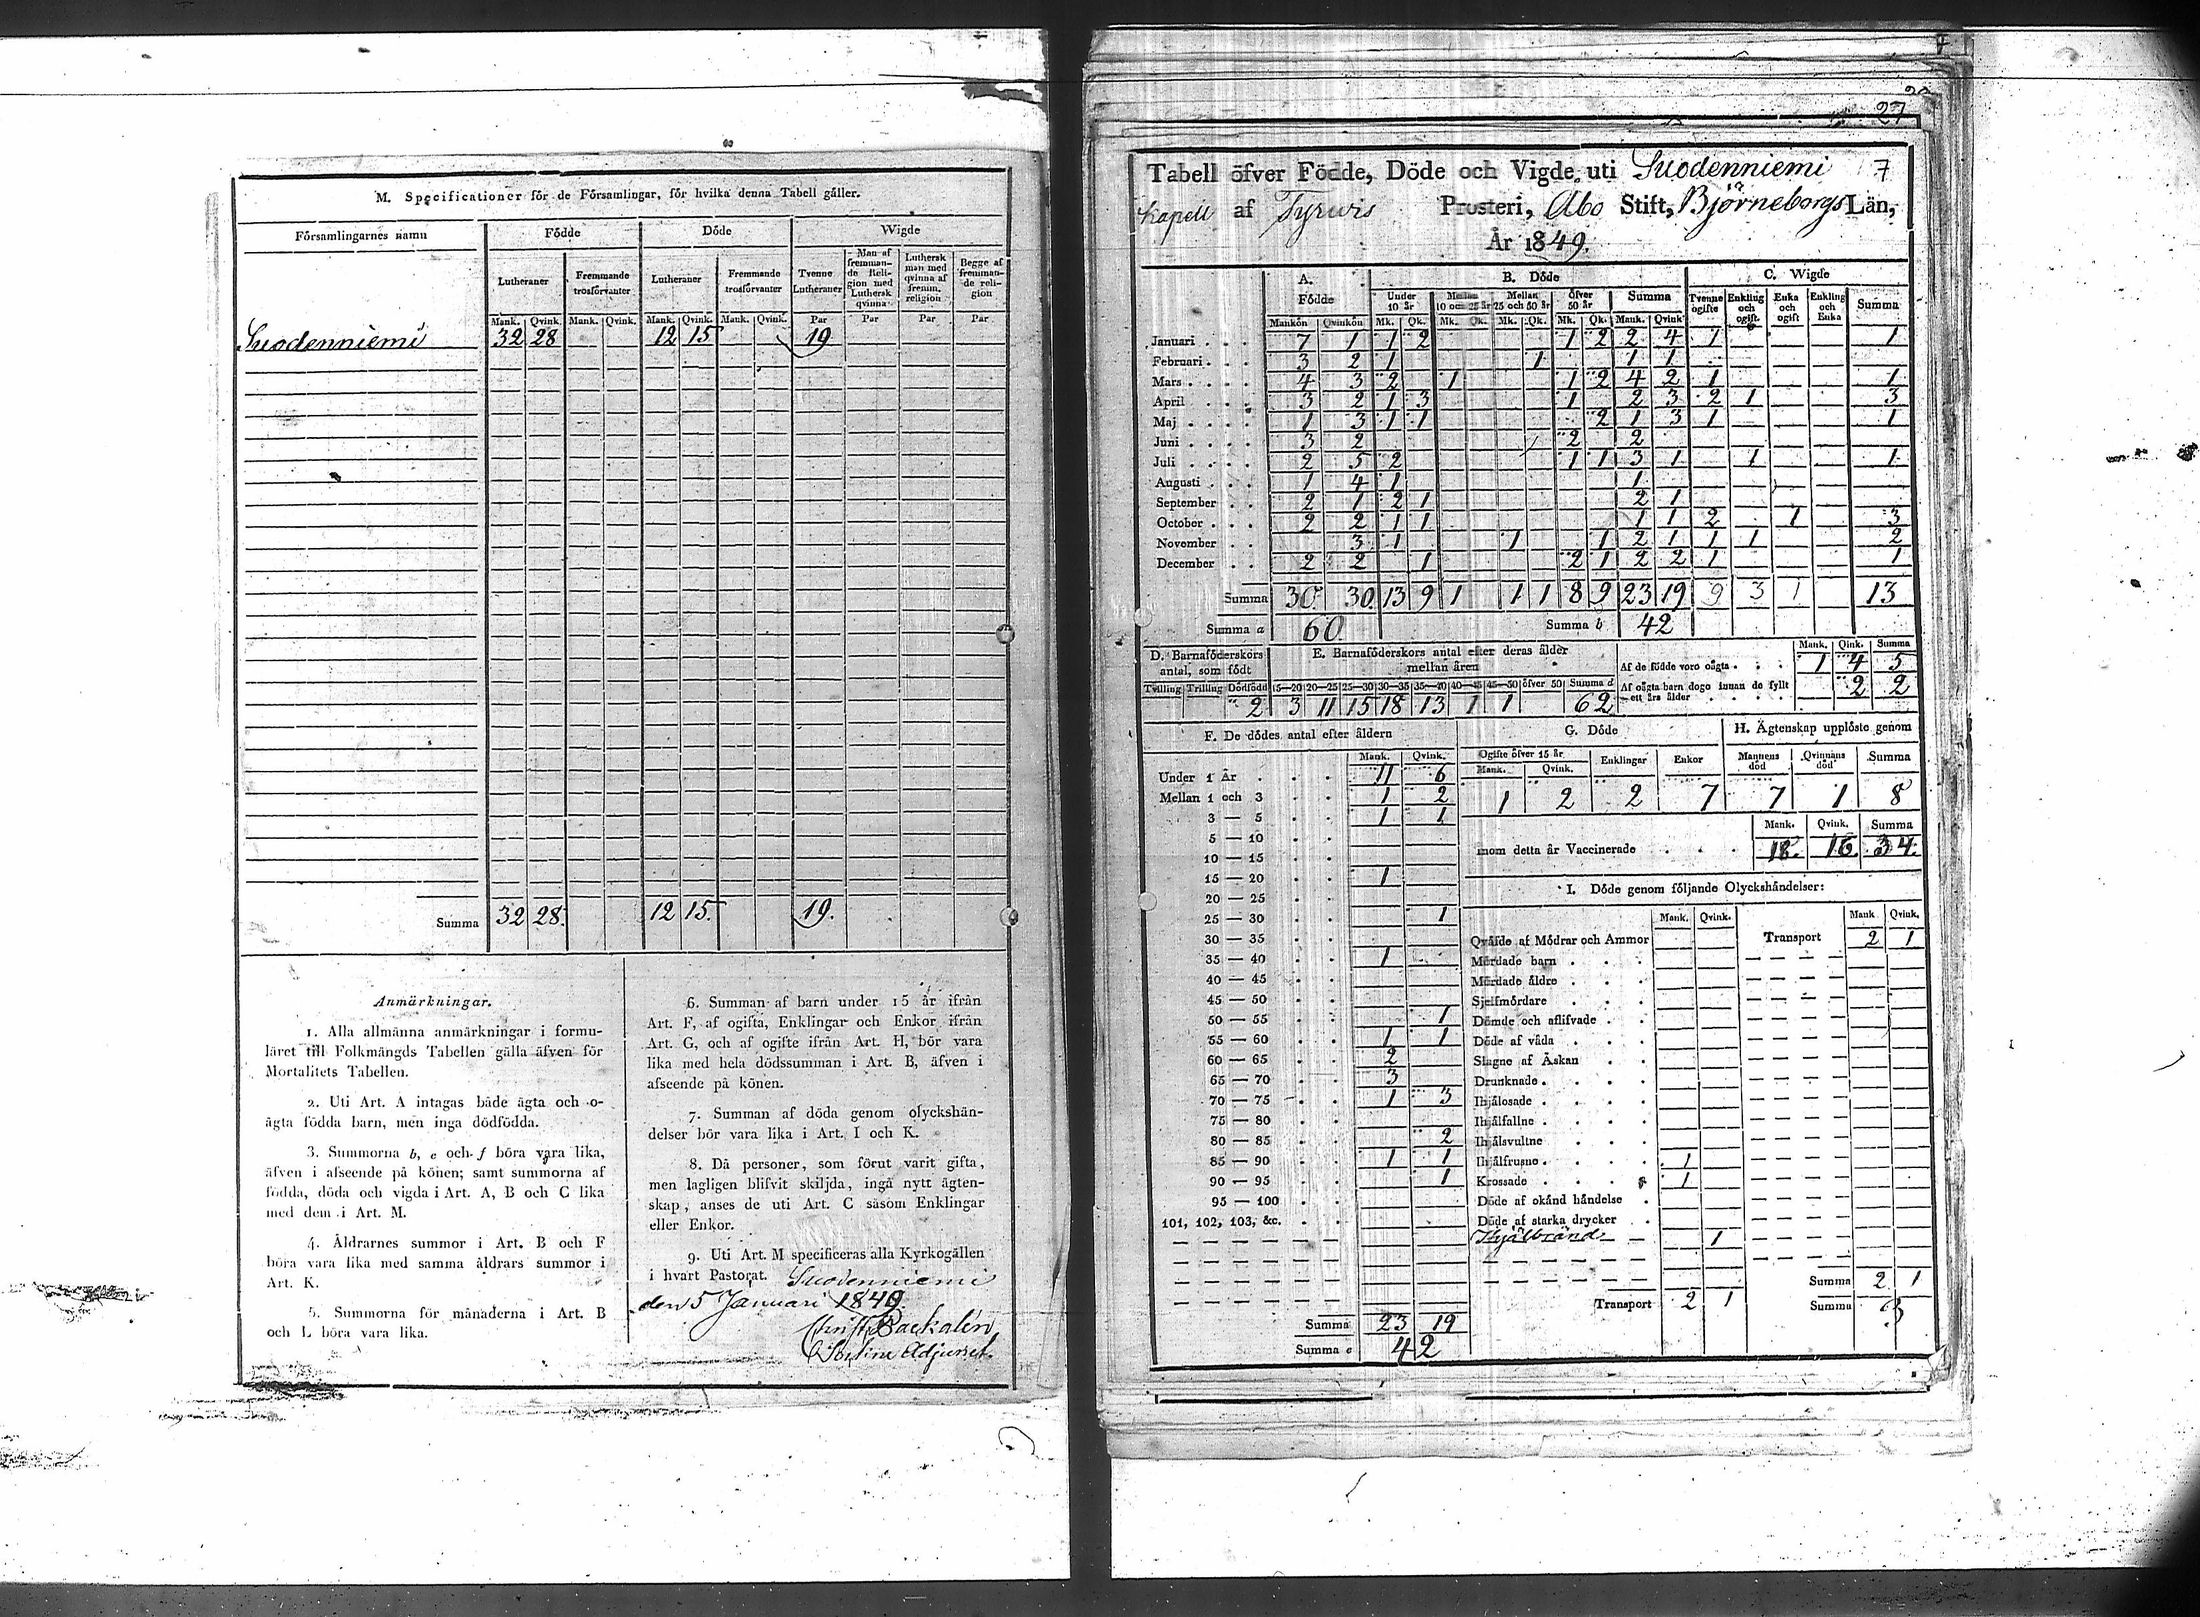 M. Specificationer för de Församlingar, för hvilka denna Tabell gäller.
Församlingarnes namn Födde Döde Wigde
Lutheraner Fremmande trosförvanter Lutheraner Fremmande trosförvanter Tvenne Lutheraner Man af fremmande Religion med Luthersk qvinna Luthersk man med qvinna af fremm. religion Begge af fremmande religion
Mank. Qvink. Mank. Qvink. Mank. Qvink. Mank. Qvink. Par Par Par Par
Suodenniemi 32 28 12 15 19
Summa 32 28 12 15 19
Anmärkningar.
1. Alla allmänna anmärkningar i formu-
läret till Folkmängds Tabellen gälla äfven för
Mortalitets Tabellen.
2. Uti Art. A intagas både ägta och o-
ägta födda barn, men inga dödfödda.
3. Summorna b, e och f böra vara lika,
äfven i afseende på könen; samt summorna af
födda, döda och vigda i Art. A, B och C lika
med dem i Art. M.
4. Åldrarnes summor i Art. B och F
böra vara lika med samma åldrars summor i
Art. K.
5. Summorna för månaderna i Art. B
och L böra vara lika.
6. Summan af barn under 15 år ifrån
Art. F, af ogifta, Enklingar och Enkor ifrån
Art. G, och af ogifte ifrån Art. H, bör vara
lika med hela dödssumman i Art. B, äfven i
afseende på könen.
7. Summan af döda genom olyckshän-
delser bör vara lika i Art. I och K.
8. Då personer, som förut varit gifta,
men lagligen blifvit skiljda, ingå nytt ägten-
skap, anses de uti Art. C såsom Enklingar
eller Enkor.
9. Uti Art. M specificeras alla Kyrkogällen
i hvart Pastorat. Suodenniemi
den 5 Januari 1849.
27
Tabell öfver Födde, Döde och Vigde uti Suodenniemi 7
Kapell af Tyrwis Prosteri, Åbo Stift, Björneborgs Län,
År 1849.
A. Födde B. Döde C. Wigde
Under 10 år Mellan 10 och 25 år Mellan 25 och 50 år Öfver 50 år Summa Tvenne ogifte Enkling och ogift Enka och ogift Enkling och Enka Summa
Mankön Qvinkön Mk. Qk. Mk. Qk. Mk. Qk. Mk. Qk. Mank. Qvink
Januari 7 1 1 2 1 2 2 4 1 1
Februari 3 2 1 1 1 1
Mars 4 3 2 1 1 2 4 2 1 1
April 3 2 1 3 1 2 3 2 1 3
Maj 1 3 1 1 2 1 3 1 1
Juni 3 2 2 2
Juli 2 5 2 1 1 3 1 1 1
Augusti 1 4 1 1
September 2 1 2 1 2 1
October 2 2 1 1 1 1 2 1 3
November 3 1 1 1 2 1 1 1 2
December 2 2 1 2 1 2 2 1 1
Summa 30 30 13 9 1 1 1 8 9 23 19 9 3 1 13
Summa a 60 Summa b 42
D. Barnaföderskors antal, som födt
Tvilling Trilling Dödfödd
2
E. Barnaföderskors antal efter deras ålder mellan åren
15—20 20—25 25—30 30—35 35—40 40—45 45—50 öfver 50 Summa d
3 11 15 18 13 1 1 62
Mank. Qink. Summa
Af de födde voro oägta 1 4 5
Af oägta barn dogo innan de fyllt ett års ålder 2 2
F. De dödes antal efter åldern
Mank. Qvink.
Under 1 År 11 6
Mellan 1 och 3 1 2
3 — 5 1 1
5 — 10
10 — 15
15 — 20 1
20 — 25
25 — 30 1
30 — 35
35 — 40 1
40 — 45
45 — 50
50 — 55 1
55 — 60 1 1
60 — 65 2
65 — 70 3
70 — 75 1 3
75 — 80
80 — 85 2
85 — 90 1 1
90 — 95 1
95 — 100
101, 102, 103, &c.
Summa 23 19
Summa e 42
G. Döde
Ogifte öfver 15 år Enklingar Enkor
Mank. Qvink.
1 2 2 7
H. Ägtenskap upplöste genom
Mannens död Qvinnans död Summa
7 1 8
Mank. Qvink. Summa
inom detta år Vaccinerade 18. 16. 34.
I. Döde genom följande Olyckshändelser:
Mank. Qvink. Mank Qvink.
Qväfde af Mödrar och Ammor Transport 2 1
Mördade barn
Mördade äldre
Sjelfmördare
Dömde och aflifvade
Döde af våda
Slagne af Åskan
Drunknade
Ihjälosade
Ihjälfallne
Ihjälsvultne
Ihjälfrusne 1
Krossade 1
Döde af okänd händelse
Döde af starka drycker
Ihjälbränd 1
Summa 2 1
Transport 2 1 Summa 3